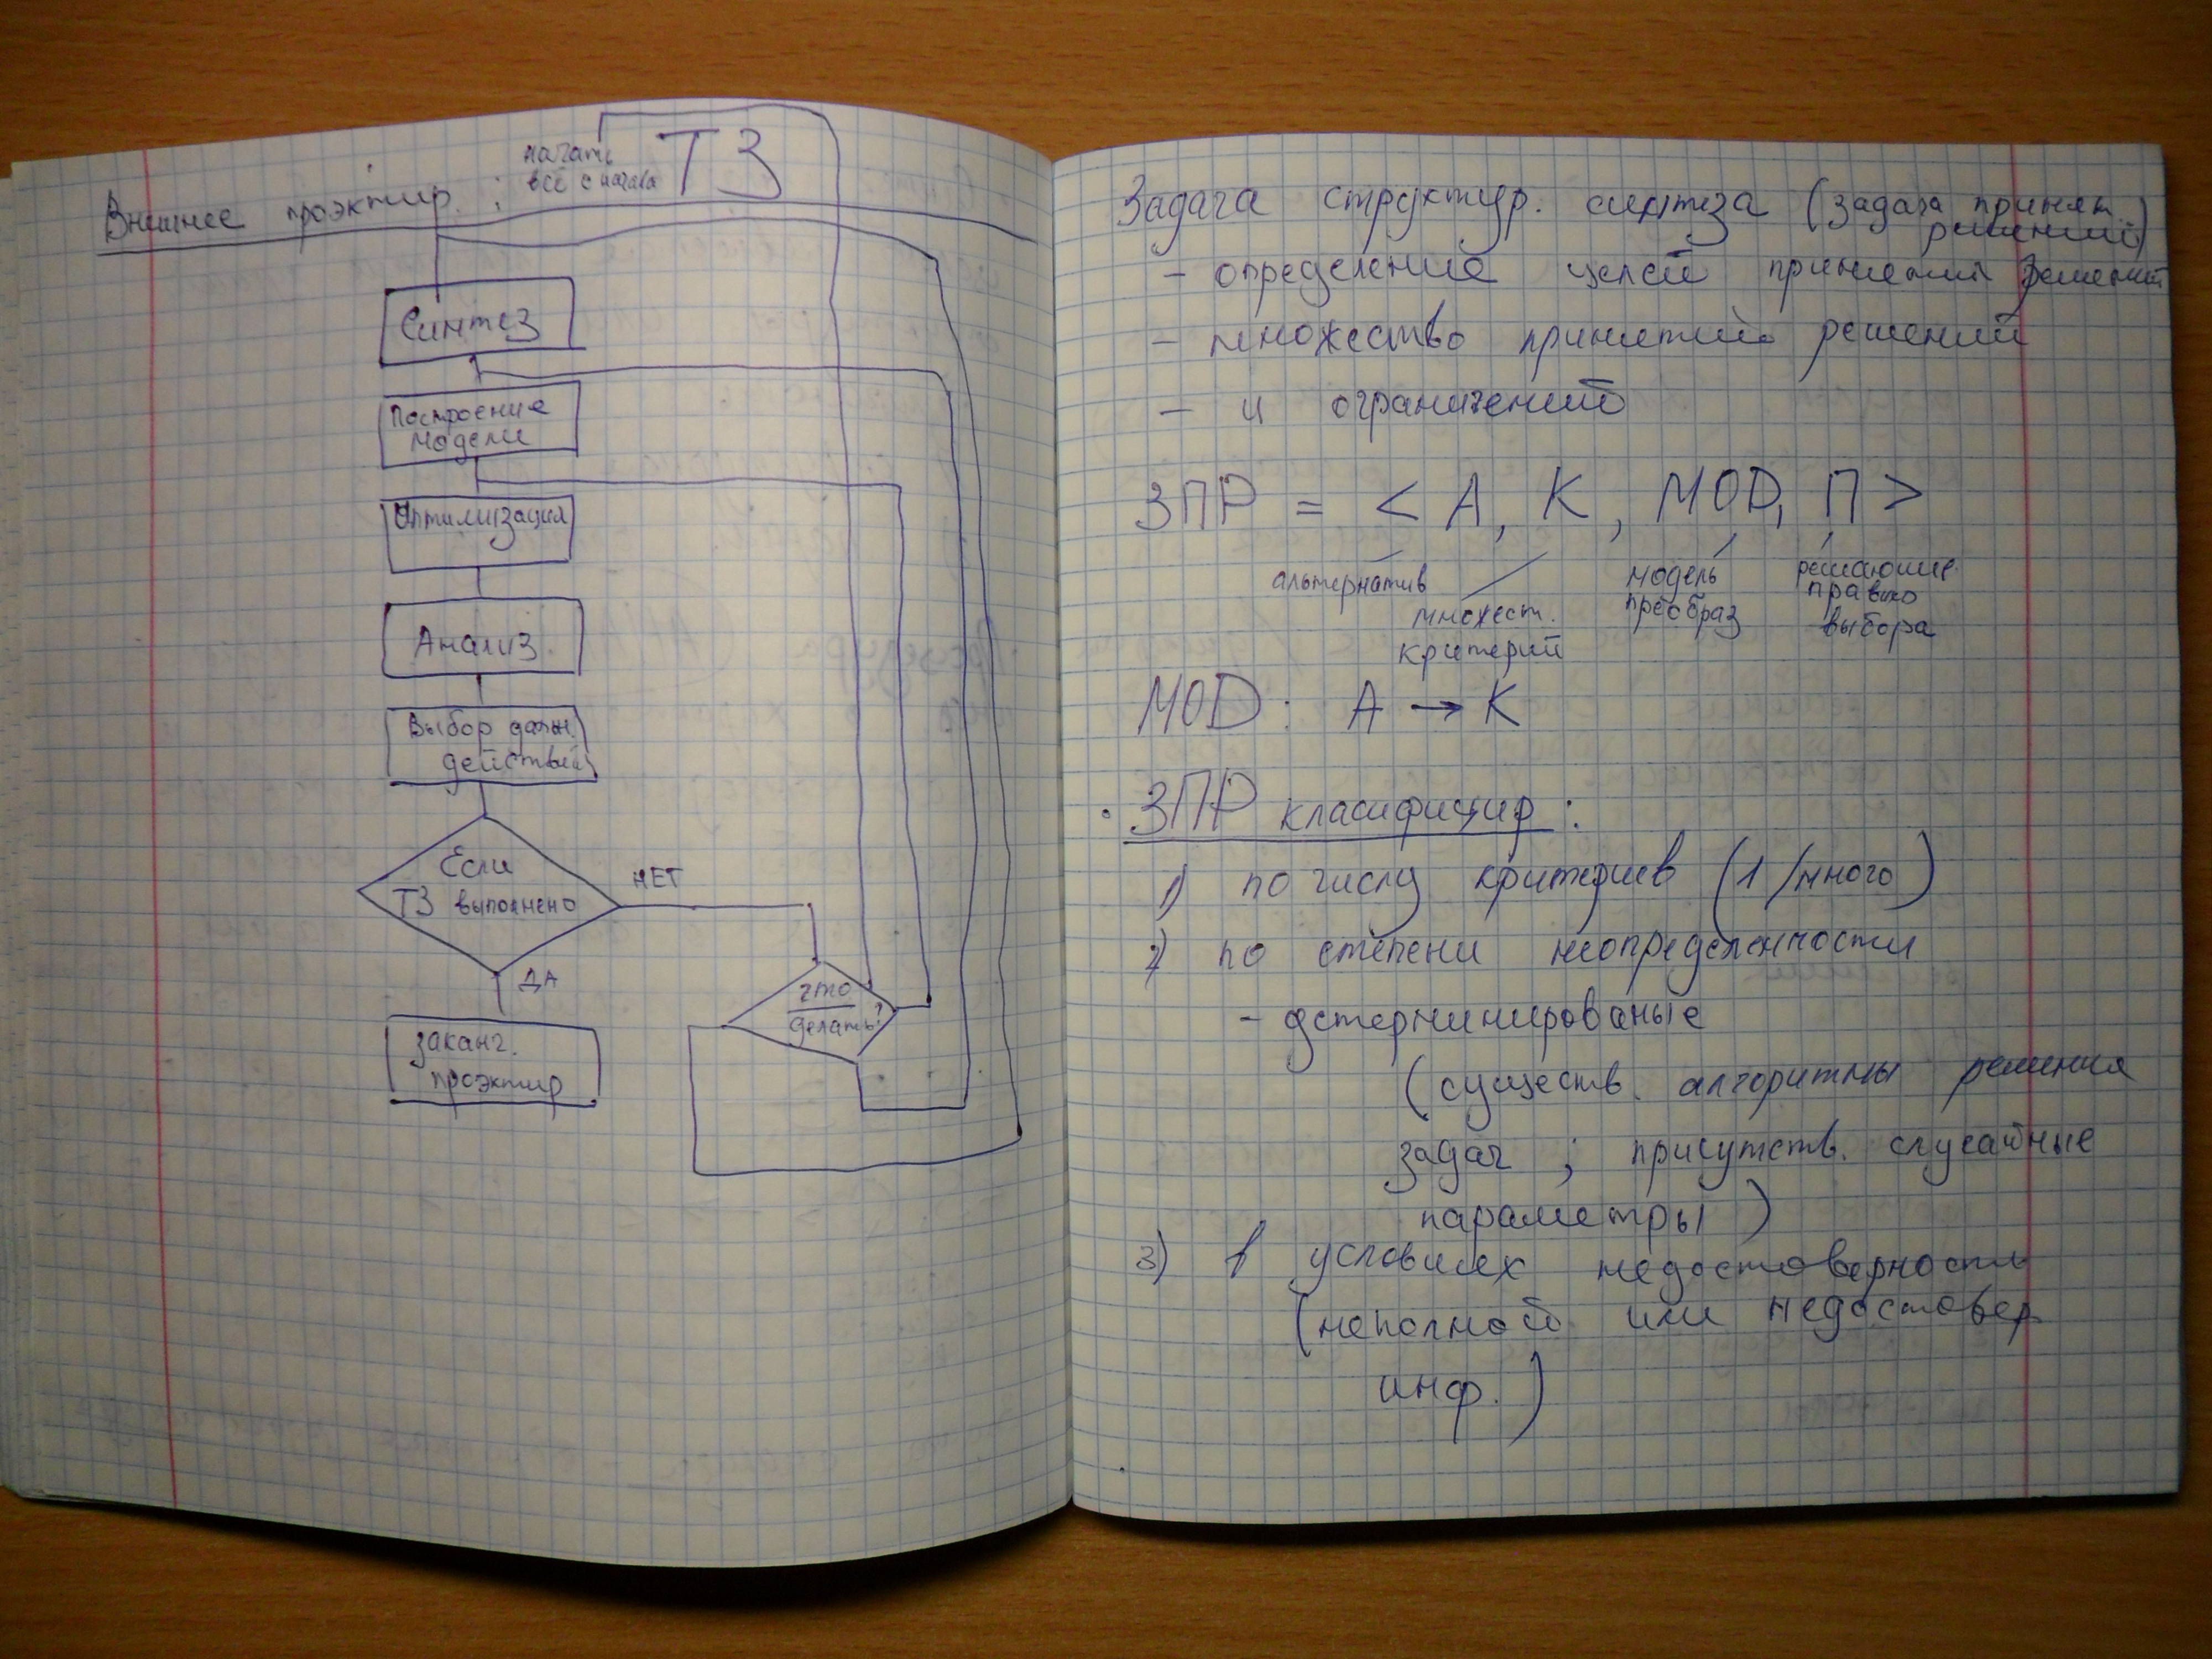 начать
всё сначала
ТЗ
Внешнее проэктир. :
Синтез
Построение
модели
Оптимизация
Анализ
Выбор дальн.
действий
Если
ТЗ выполнено
НЕТ
ДА
что
делать?
заканч.
проэктир
Задача структур. синтеза (задача принят.
решений)
- определение целей принятий решений
- множество принятий решений
- и ограничений
ЗПР = < А, К, MOD, П >
альтернатив
множест.
критерий
модель
преобраз
решающие
правило
выбора
MOD: А → К
ЗПР класифицир:
1) по числу критериев (1/много)
2) по степени неопределенности
- детерминированые
(существ. алгоритмы решения
задач ; присутств. случайные
параметры)
3) в условиях недостоверность
(неполной или недостовер
инф.)